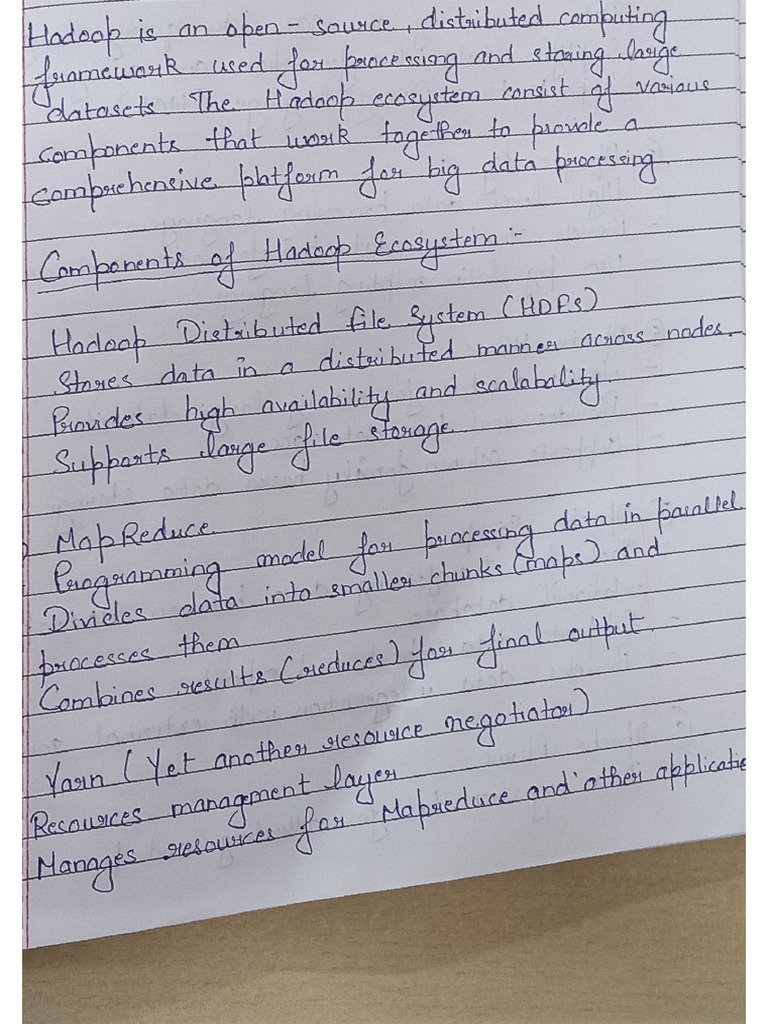 Hadoop is an open - source, distributed computing
framework used for processing and storing large
datasets. The Hadoop ecosystem consist of various
components that work together to provide a
comprehensive platform for big data processing
Components of Hadoop Ecosystem :-
Hadoop Distributed file System (HDFs)
Stores data in a distributed manner across nodes.
Provides high availability and scalabality.
Supports large file storage
MapReduce
Programming model for processing data in parallel
Divides data into smaller chunks (maps) and
processes them
Combines results (reduces) for final output.
Yarn (Yet another resource negotiator)
Resources management layer
Manages resources for Mapreduce and other